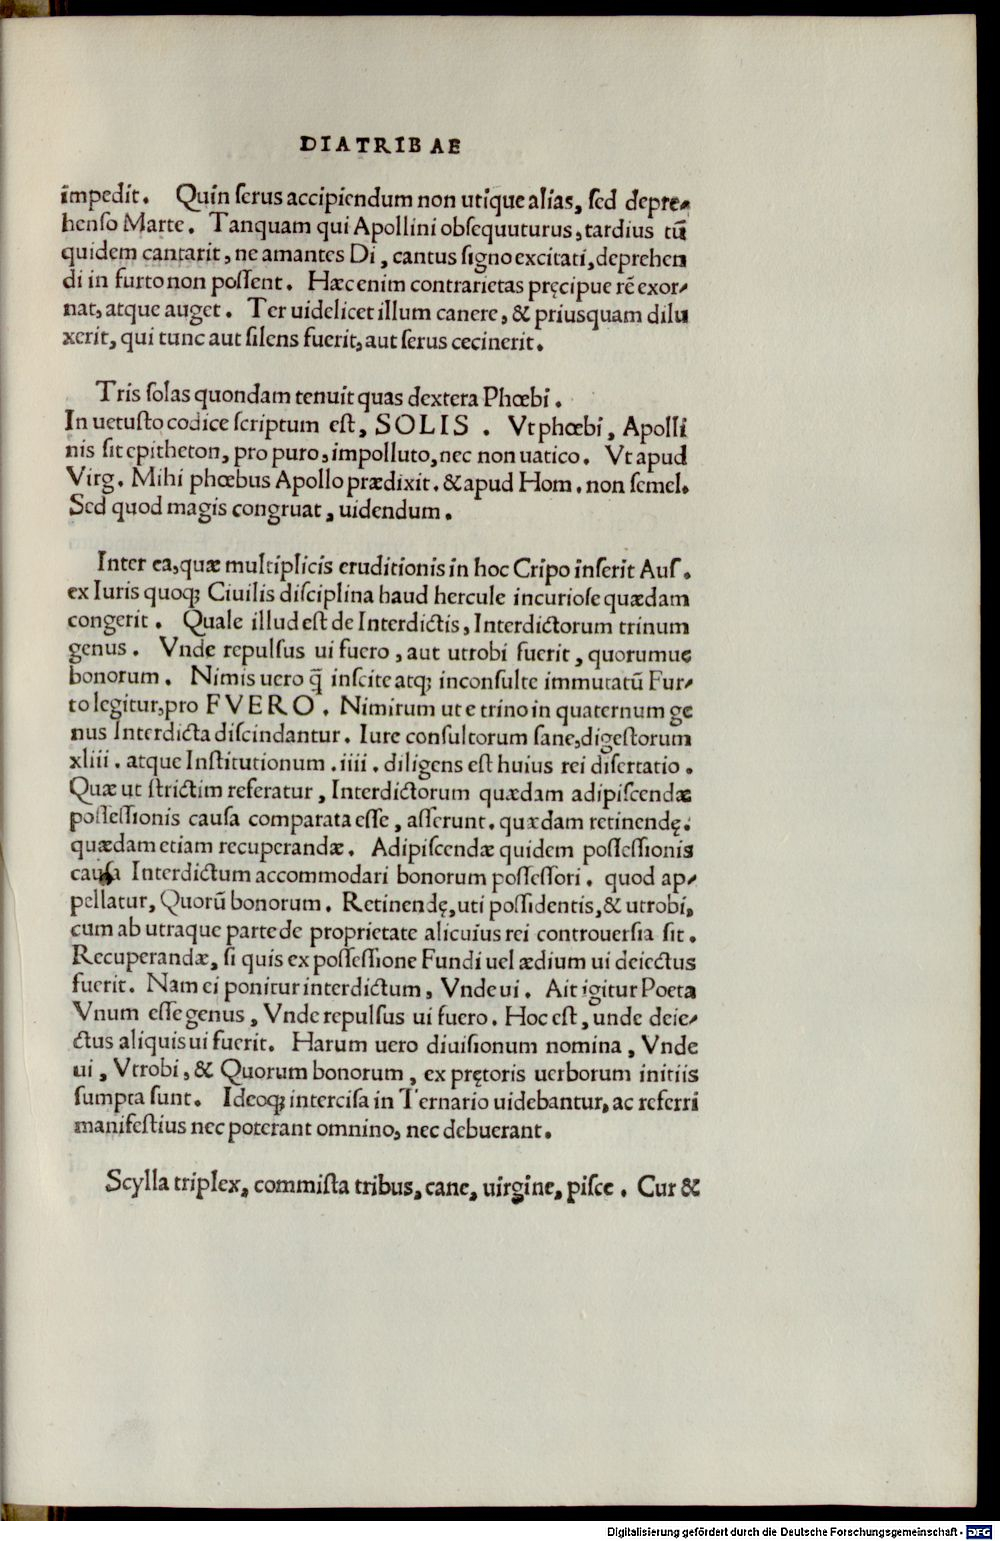 DIATRIBAE
impedit. Quin serus accipiendum non utique alias, sed depre-
henso Marte. Tanquam qui Apollini obsequuturus, tardius tū
quidem cantarit, ne amantes Di, cantus signo excitati, deprehen
di in furto non possent. Hæc enim contrarietas pręcipue rē exor-
nat, atque auget. Ter uidelicet illum canere, & priusquam dilu
xerit, qui tunc aut silens fuerit, aut serus cecinerit.
Tris solas quondam tenuit quas dextera Phœbi.
In uetusto codice scriptum est, SOLIS. Vt phœbi, Apolli
nis sit epitheton, pro puro, impolluto, nec non uatico. Vt apud
Virg. Mihi phœbus Apollo prædixit. & apud Hom. non semel.
Sed quod magis congruat, uidendum.
Inter ea, quæ multiplicis eruditionis in hoc Cripo inserit Aus.
ex Iuris quoq; Ciuilis disciplina haud hercule incuriose quædam
congerit. Quale illud est de Interdictis, Interdictorum trinum
genus. Vnde repulsus ui fuero, aut utrobi fuerit, quorumue
bonorum. Nimis uero q̄ inscite atq; inconsulte immutatū Fur-
to legitur, pro FVERO. Nimirum ut e trino in quaternum ge
nus Interdicta discindantur. Iure consultorum sane, digestorum
xliii. atque Institutionum .iiii. diligens est huius rei disertatio.
Quæ ut strictim referatur, Interdictorum quædam adipiscendæ
possessionis causa comparata esse, asserunt. quædam retinendę.
quædam etiam recuperandæ. Adipiscendæ quidem possessionis
causa Interdictum accommodari bonorum possessori. quod ap-
pellatur, Quorū bonorum. Retinendę, uti possidentis, & utrobi,
cum ab utraque parte de proprietate alicuius rei controuersia sit.
Recuperandæ, si quis ex possessione Fundi uel ædium ui deiectus
fuerit. Nam ei ponitur interdictum, Vnde ui. Ait igitur Poeta
Vnum esse genus, Vnde repulsus ui fuero. Hoc est, unde deie-
ctus aliquis ui fuerit. Harum uero diuisionum nomina, Vnde
ui, Vtrobi, & Quorum bonorum, ex prętoris uerborum initiis
sumpta sunt. Ideoq; intercisa in Ternario uidebantur, ac referri
manifestius nec poterant omnino, nec debuerant.
Scylla triplex, commista tribus, cane, uirgine, pisce. Cur &
Digitalisierung gefördert durch die Deutsche Forschungsgemeinschaft - DFG